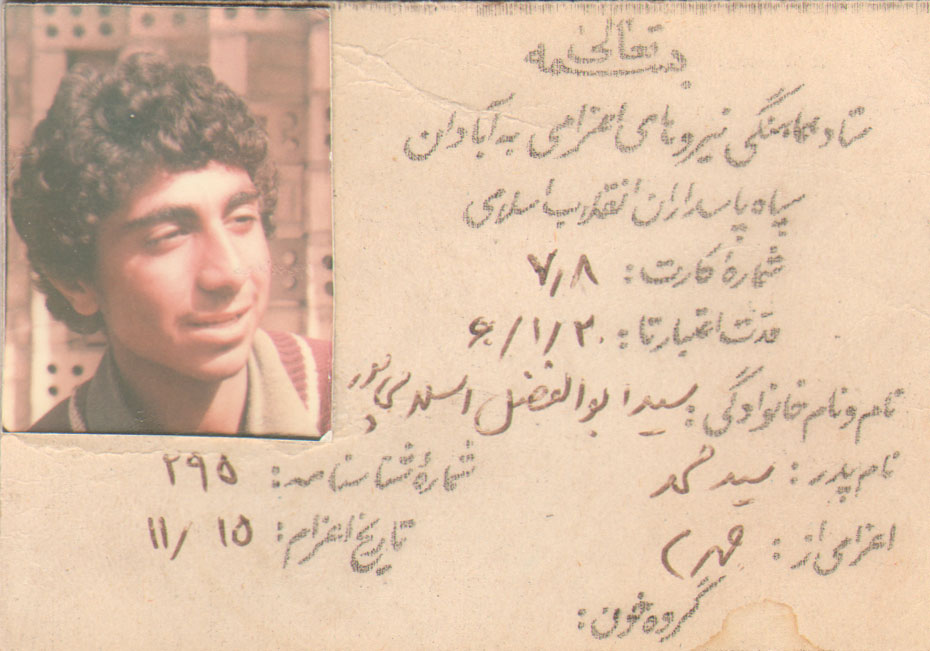 بسمه تعالی
ستاد هماهنگی نیروهای اعزامی به آبادان
سپاه پاسداران انقلاب اسلامی
شمارهٔ کارت: ۷٫۸
مدت اعتبار تا: ۶۰/۱/۲
نام و نام خانوادگی: سید ابوالفضل
نام پدر: سید محمد شمارهٔ شناسنامه: ۲۹۵
اعزامی از: تاریخ اعزام: ۱۱/۱۵
گروه خون: